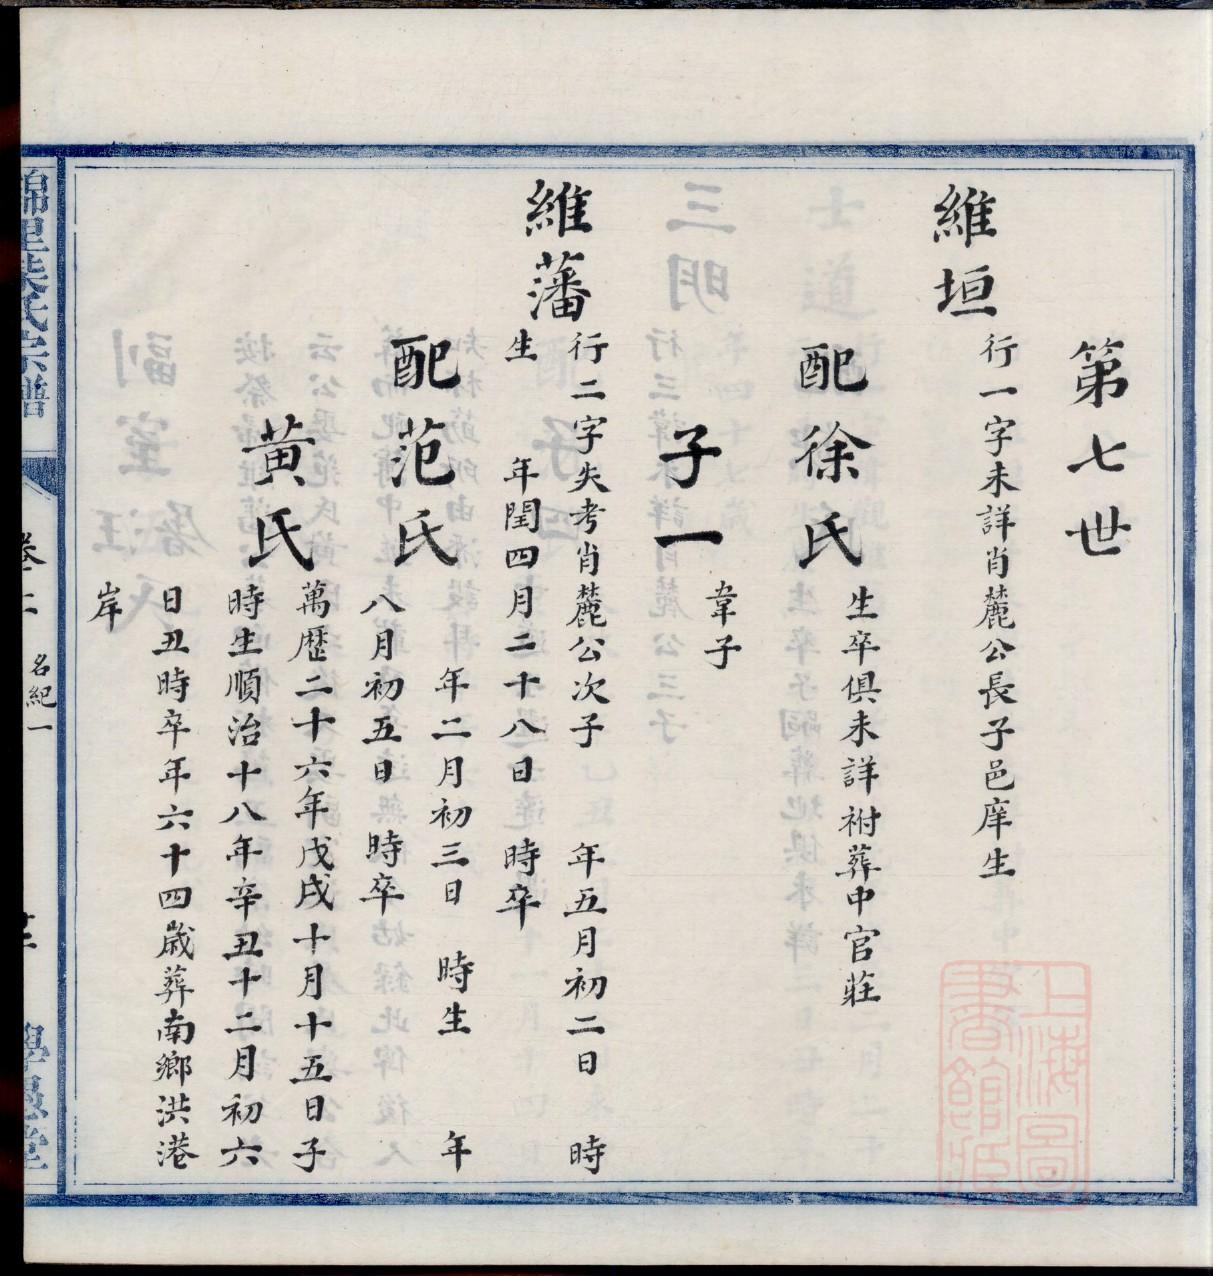 第七世
維垣
行一字未詳肖麓公長子邑庠生
配徐氏
生卒俱未詳祔葬中官莊
子一
韋子
維藩
行二字失考肖麓公次子 年五月初二日 時
生 年閏四月二十八日 時卒
配范氏
年二月初三日 時生 年
八月初五日 時卒
黄氏
萬歷二十六年戊戌十月十五日子
時生順治十八年辛丑十二月初六
日丑時卒年六十四歲葬南鄉洪港
岸
氏宗譜
名紀一
上海圖
書館藏